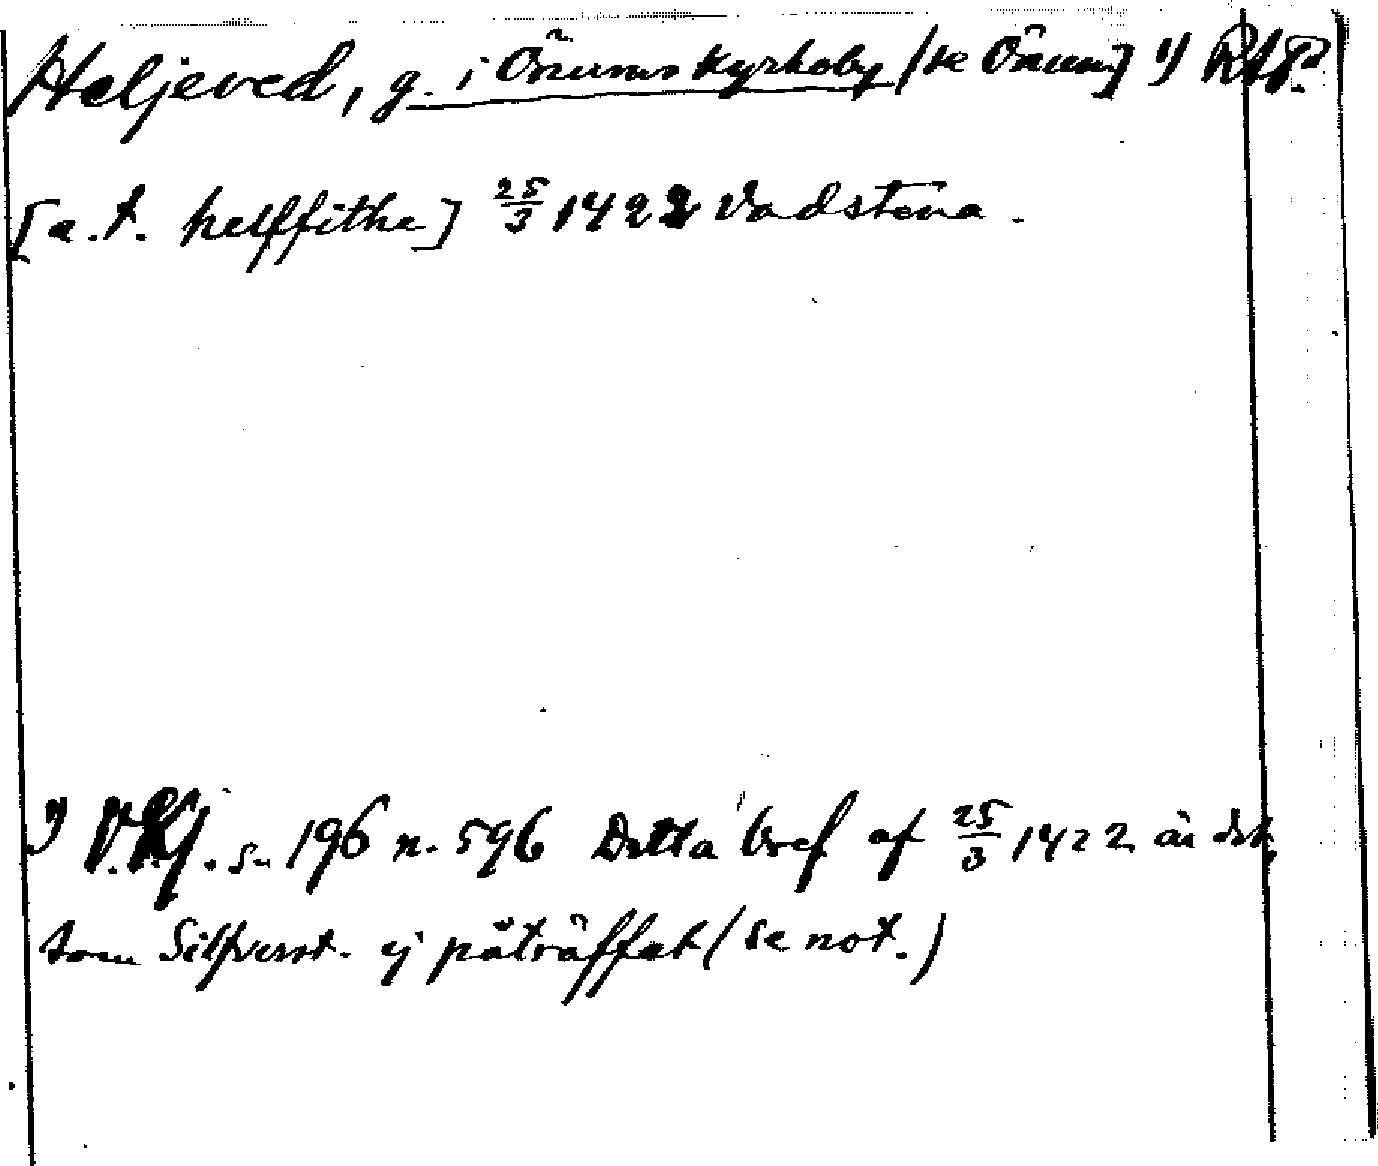 Heljeved, g. i Önums Kyrkoby (se Önum] 1) RAP.
[a. t. helffithe] 25/3 1422 Vadstena.
1) V.Kj. s. 196 n. 596 Detta bref af 25/3 1422 är det,
som Silfverst. ej påträffat (se not.)